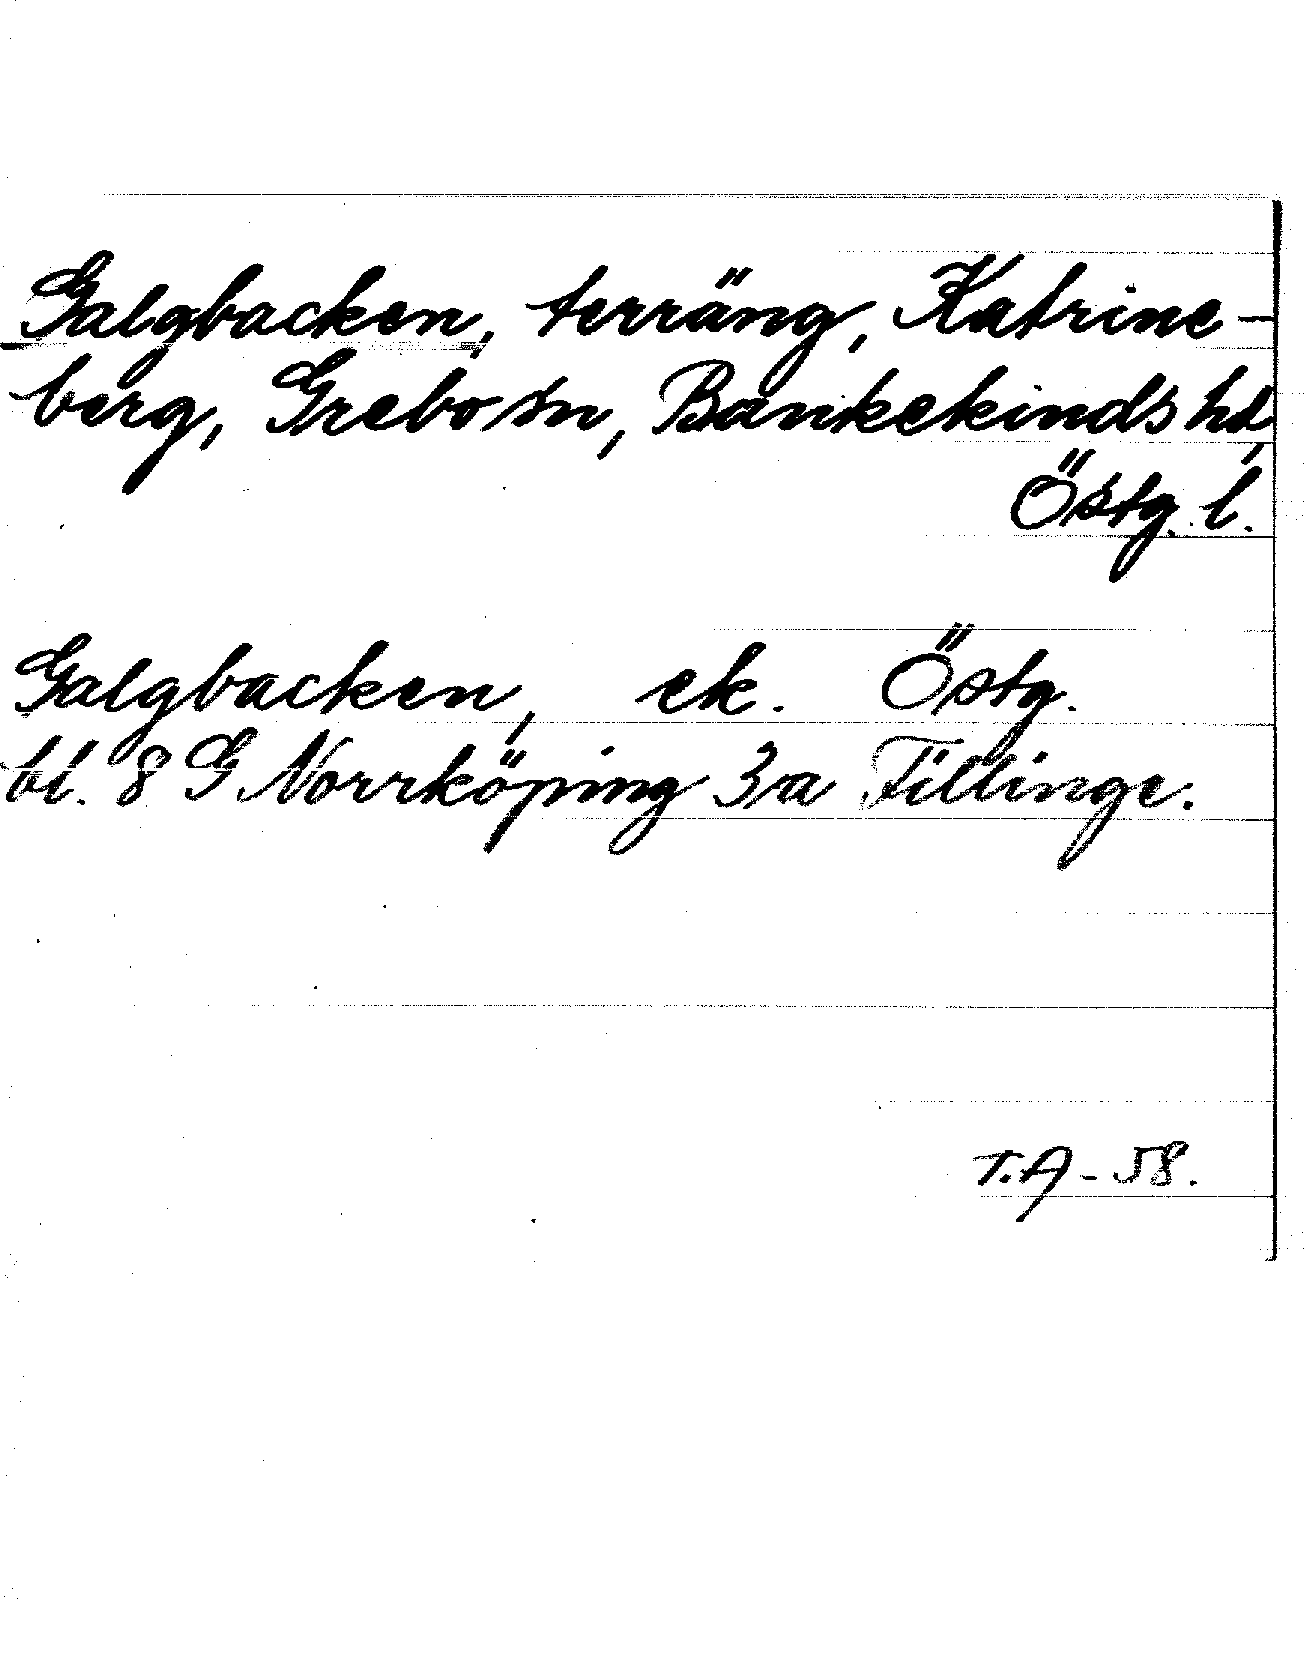 Galgbacken, terräng, Katrine-
berg, Grebo sn, Bankekinds hd,
Östg. l.
Galgbacken, ek. Östg.
bl. 8 G Norrköping 3a Fillinge.
T.A - 58.